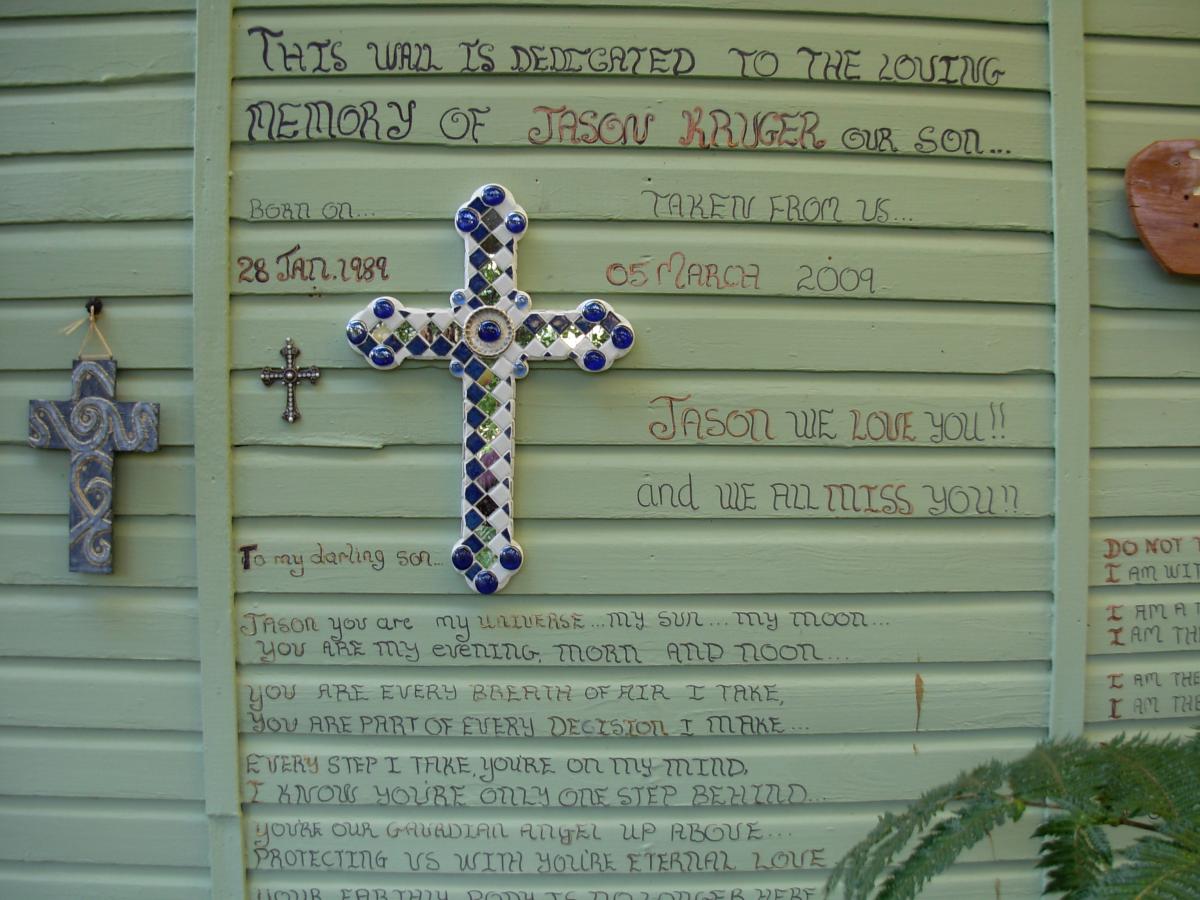 THIS WALL IS DEDICATED TO THE LOVING
MEMORY OF JASON KRUGER OUR SON...
BORN ON... TAKEN FROM US...
28 JAN. 1989 05 MARCH 2009
JASON WE LOVE YOU!!
and WE ALL MISS YOU!!
To my darling son...
JASON you are my UNIVERSE... my sun... my moon...
you ARE my evening, MORN AND NOON...
you ARE EVERY BREATH OF AIR I TAKE,
YOU ARE PART OF EVERY DECISION I MAKE...
EVERY STEP I TAKE, YOU'RE ON MY MIND,
I KNOW YOU'RE ONLY ONE STEP BEHIND...
YOU'RE OUR GAURDIAN ANGEL UP ABOVE...
PROTECTING US WITH YOU'RE ETERNAL LOVE
YOUR EARTHLY BODY IS NO LONGER HERE
DO NOT
I AM
I AM A
I AM
I AM THE
I AM THE